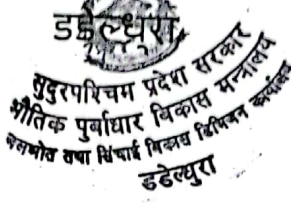 डडेल्धुरा
सुदुरपश्चिम प्रदेश सरकार
भौतिक पुर्वाधार बिकास मन्त्रालय
जलस्रोत तथा सिंचाई बिकास डिभिजन कार्यालय
डडेल्धुरा